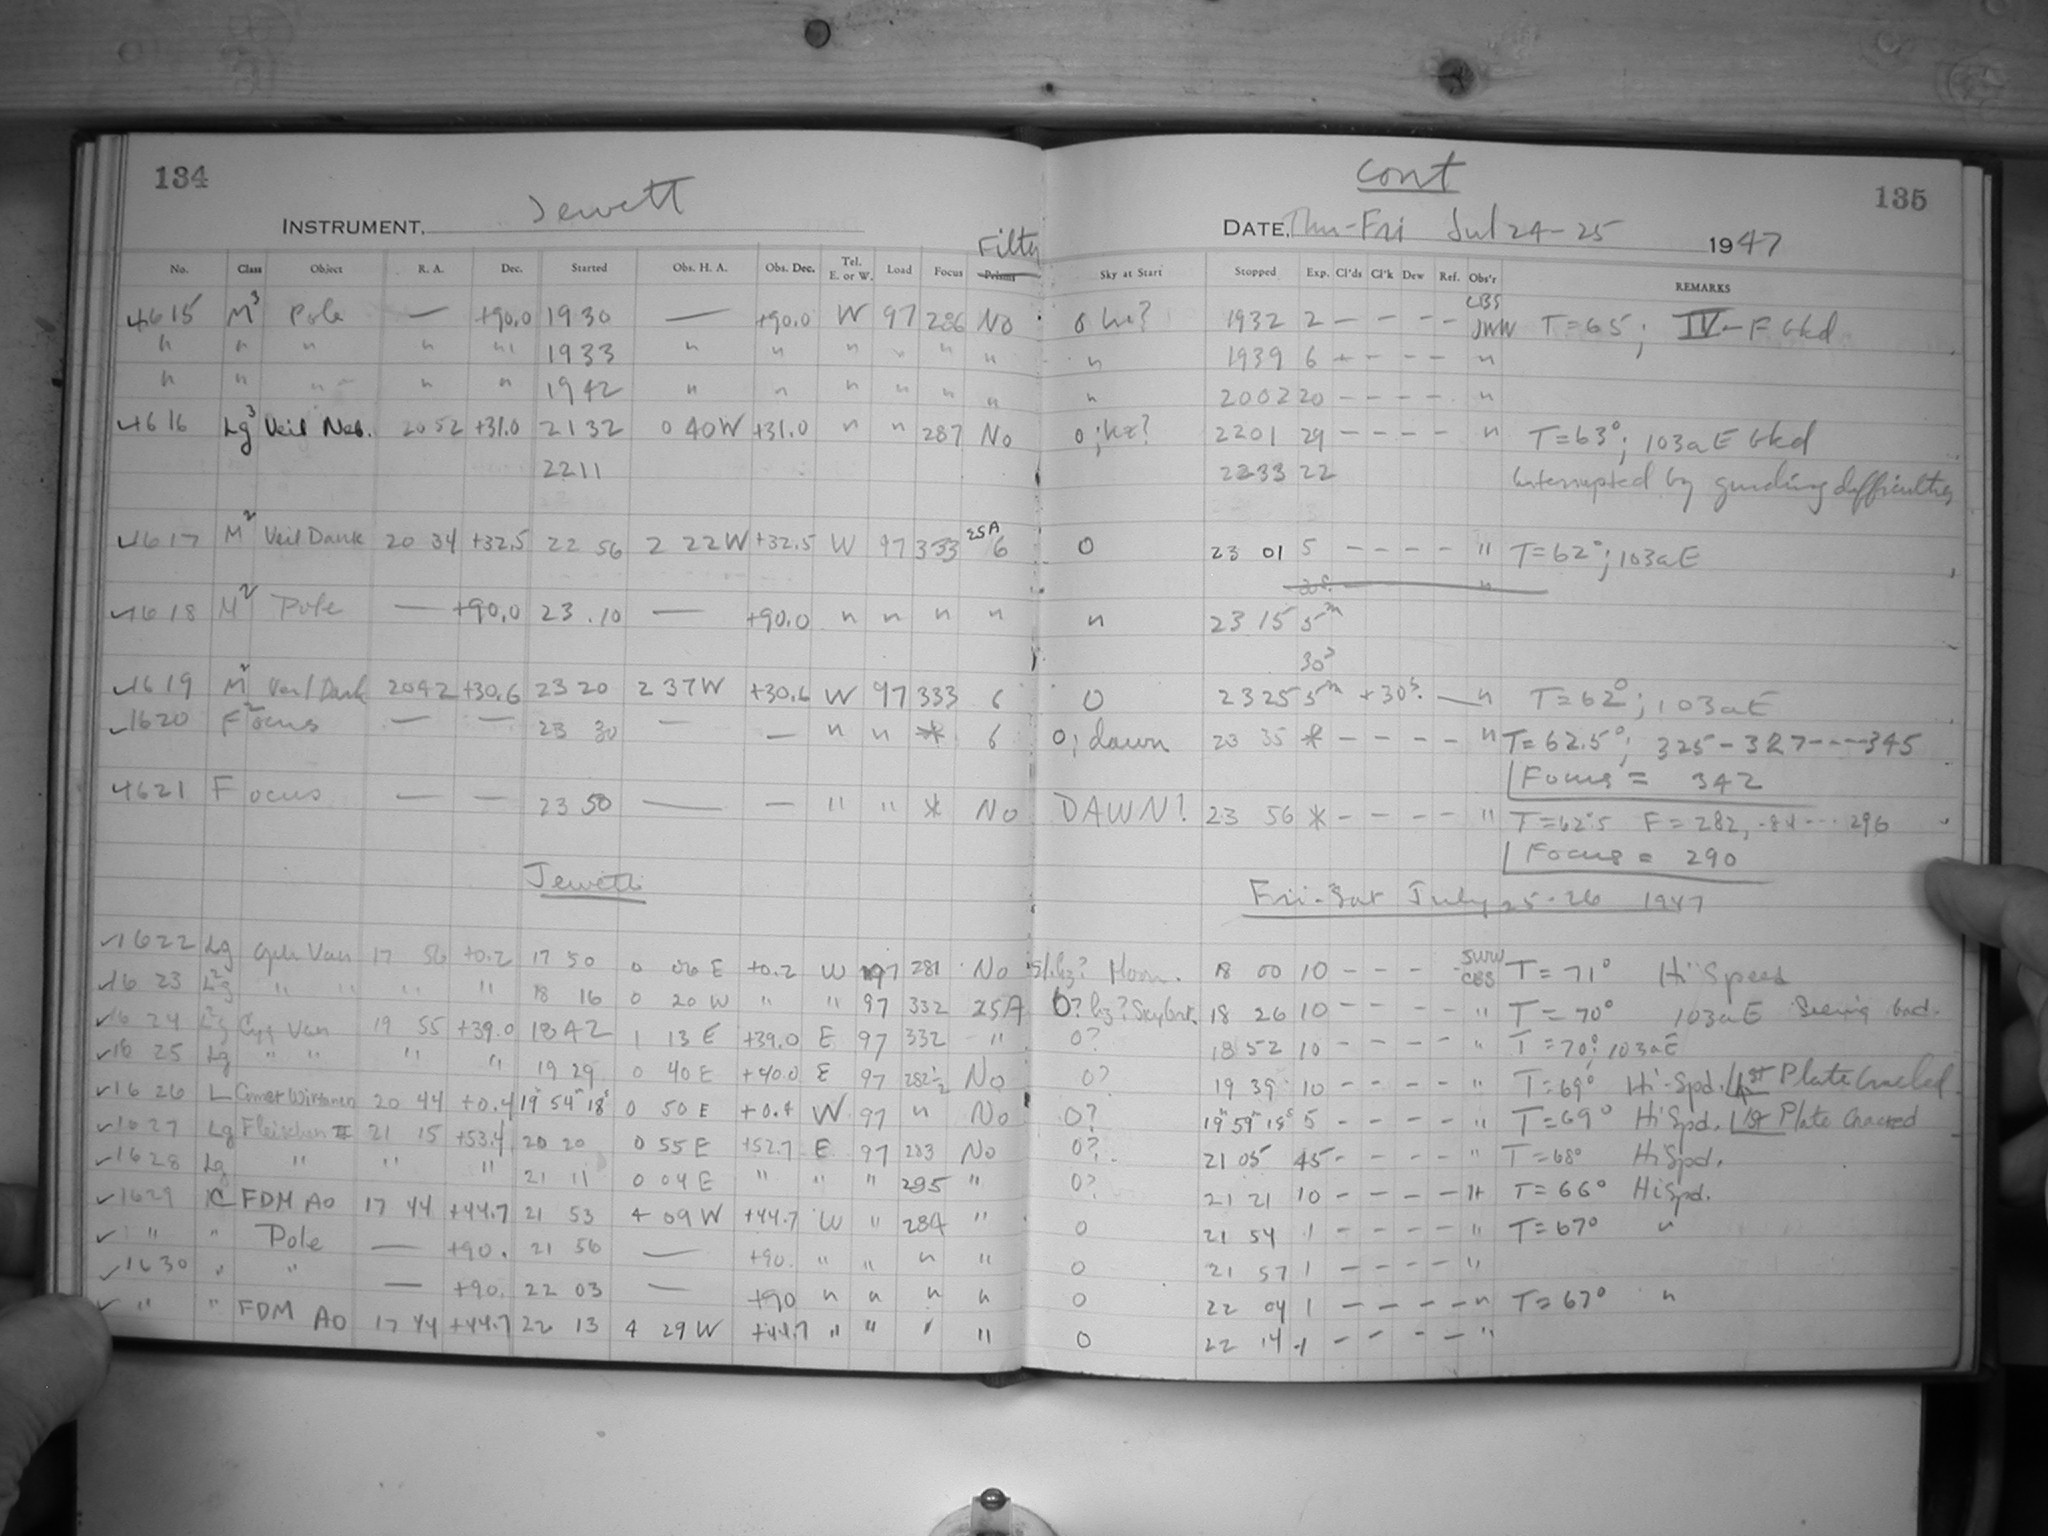 134 cont 135
INSTRUMENT, Jewett DATE, Thu-Fri Jul 24-25 1947
Filter
No. Class Object R. A. Dec. Started Obs. H. A. Obs. Dec. Tel. E. or W. Load Focus Prism Sky at Start Stopped Exp. Cl'ds Cl'k Dew Ref. Obs'r REMARKS
1615 M3 Pole — +90.0 1930 — +90.0 W 97 286 No 0 hz? 1932 2 - - - - CBS JWW T=65; IV-F bkd
" " " " " 1933 " " " " " " " 1939 6 - - - - "
" " " " " 1942 " " " " " " " 2002 20 - - - - "
1616 Lg3 Veil Neb. 20 52 +31.0 2132 0 40W +31.0 " " 287 No 0; hz? 2201 29 - - - - " T=63°; 103aE bkd
2211 2233 22 Interrupted by guiding difficulties
1617 M2 Veil Dark 20 34 +32.5 22 56 2 22W +32.5 W 97 333 25A 6 0 23 01 5 - - - - " T=62°; 103aE
1618 M2 Pole — +90.0 23 10 — +90.0 " " " " " 23 15 5m
30s
1619 M2 Veil Dark 2042 +30.6 23 20 2 37W +30.6 W 97 333 6 0 2325 5m +30s. — " T=62°; 103aE
1620 Focus — — 23 30 — — " " * 6 0; dawn 23 35 * - - - - " T=62.5°; 325-327----345
Focus = 342
1621 Focus — — 23 50 — — " " * No DAWN! 23 56 * - - - - " T=62.5 F=282, -84--- 296
Focus = 290
Jewett Fri-Sat July 25-26 1947
1622 Lg Oph Var 17 56 +0.2 17 50 0 06 E +0.2 W 97 281 No sl.hz? Moon. 18 00 10 - - - JWW CBS T=71° Hi Speed
1623 L2g " " " " 18 16 0 20 W " " 97 332 25A 0? hz? Sky brt. 18 26 10 - - - - " T=70° 103aE Seeing bad.
1624 L2g Cyg Var 19 55 +39.0 1842 1 13 E +39.0 E 97 332 " 0? 18 52 10 - - - - " T=70°; 103aE
1625 Lg " " " " 19 29 0 40 E +40.0 E 97 282½ No 0? 19 39 10 - - - - " T=69° Hi-Spd. 1st Plate Cracked
1626 L Comet Wirtanen 20 44 +0.4 19h 54m 18s 0 50 E +0.4 W 97 " No 0? 19h 59m 15s 5 - - - - " T=69° HiSpd. 1st Plate Cracked
1627 Lg Fleischer II 21 15 +53.4 20 20 0 55 E +52.7 E 97 283 No 0? 21 05 45 - - - - " T=68° HiSpd.
1628 Lg " " " 21 11 0 04 E " " " 295 " 0? 21 21 10 - - - - " T=66° HiSpd.
1629 C FDM AO 17 44 +44.7 21 53 4 09 W +44.7 W " 284 " 0 21 54 1 - - - - " T=67° "
" " Pole — +90. 21 56 — +90. " " " " 0 21 57 1 - - - - "
1630 " " — +90. 22 03 — +90 " " " " 0 22 04 1 - - - - " T=67° "
" " FDM AO 17 44 +44.7 22 13 4 29 W +44.7 " " " " 0 22 14 1 - - - - "